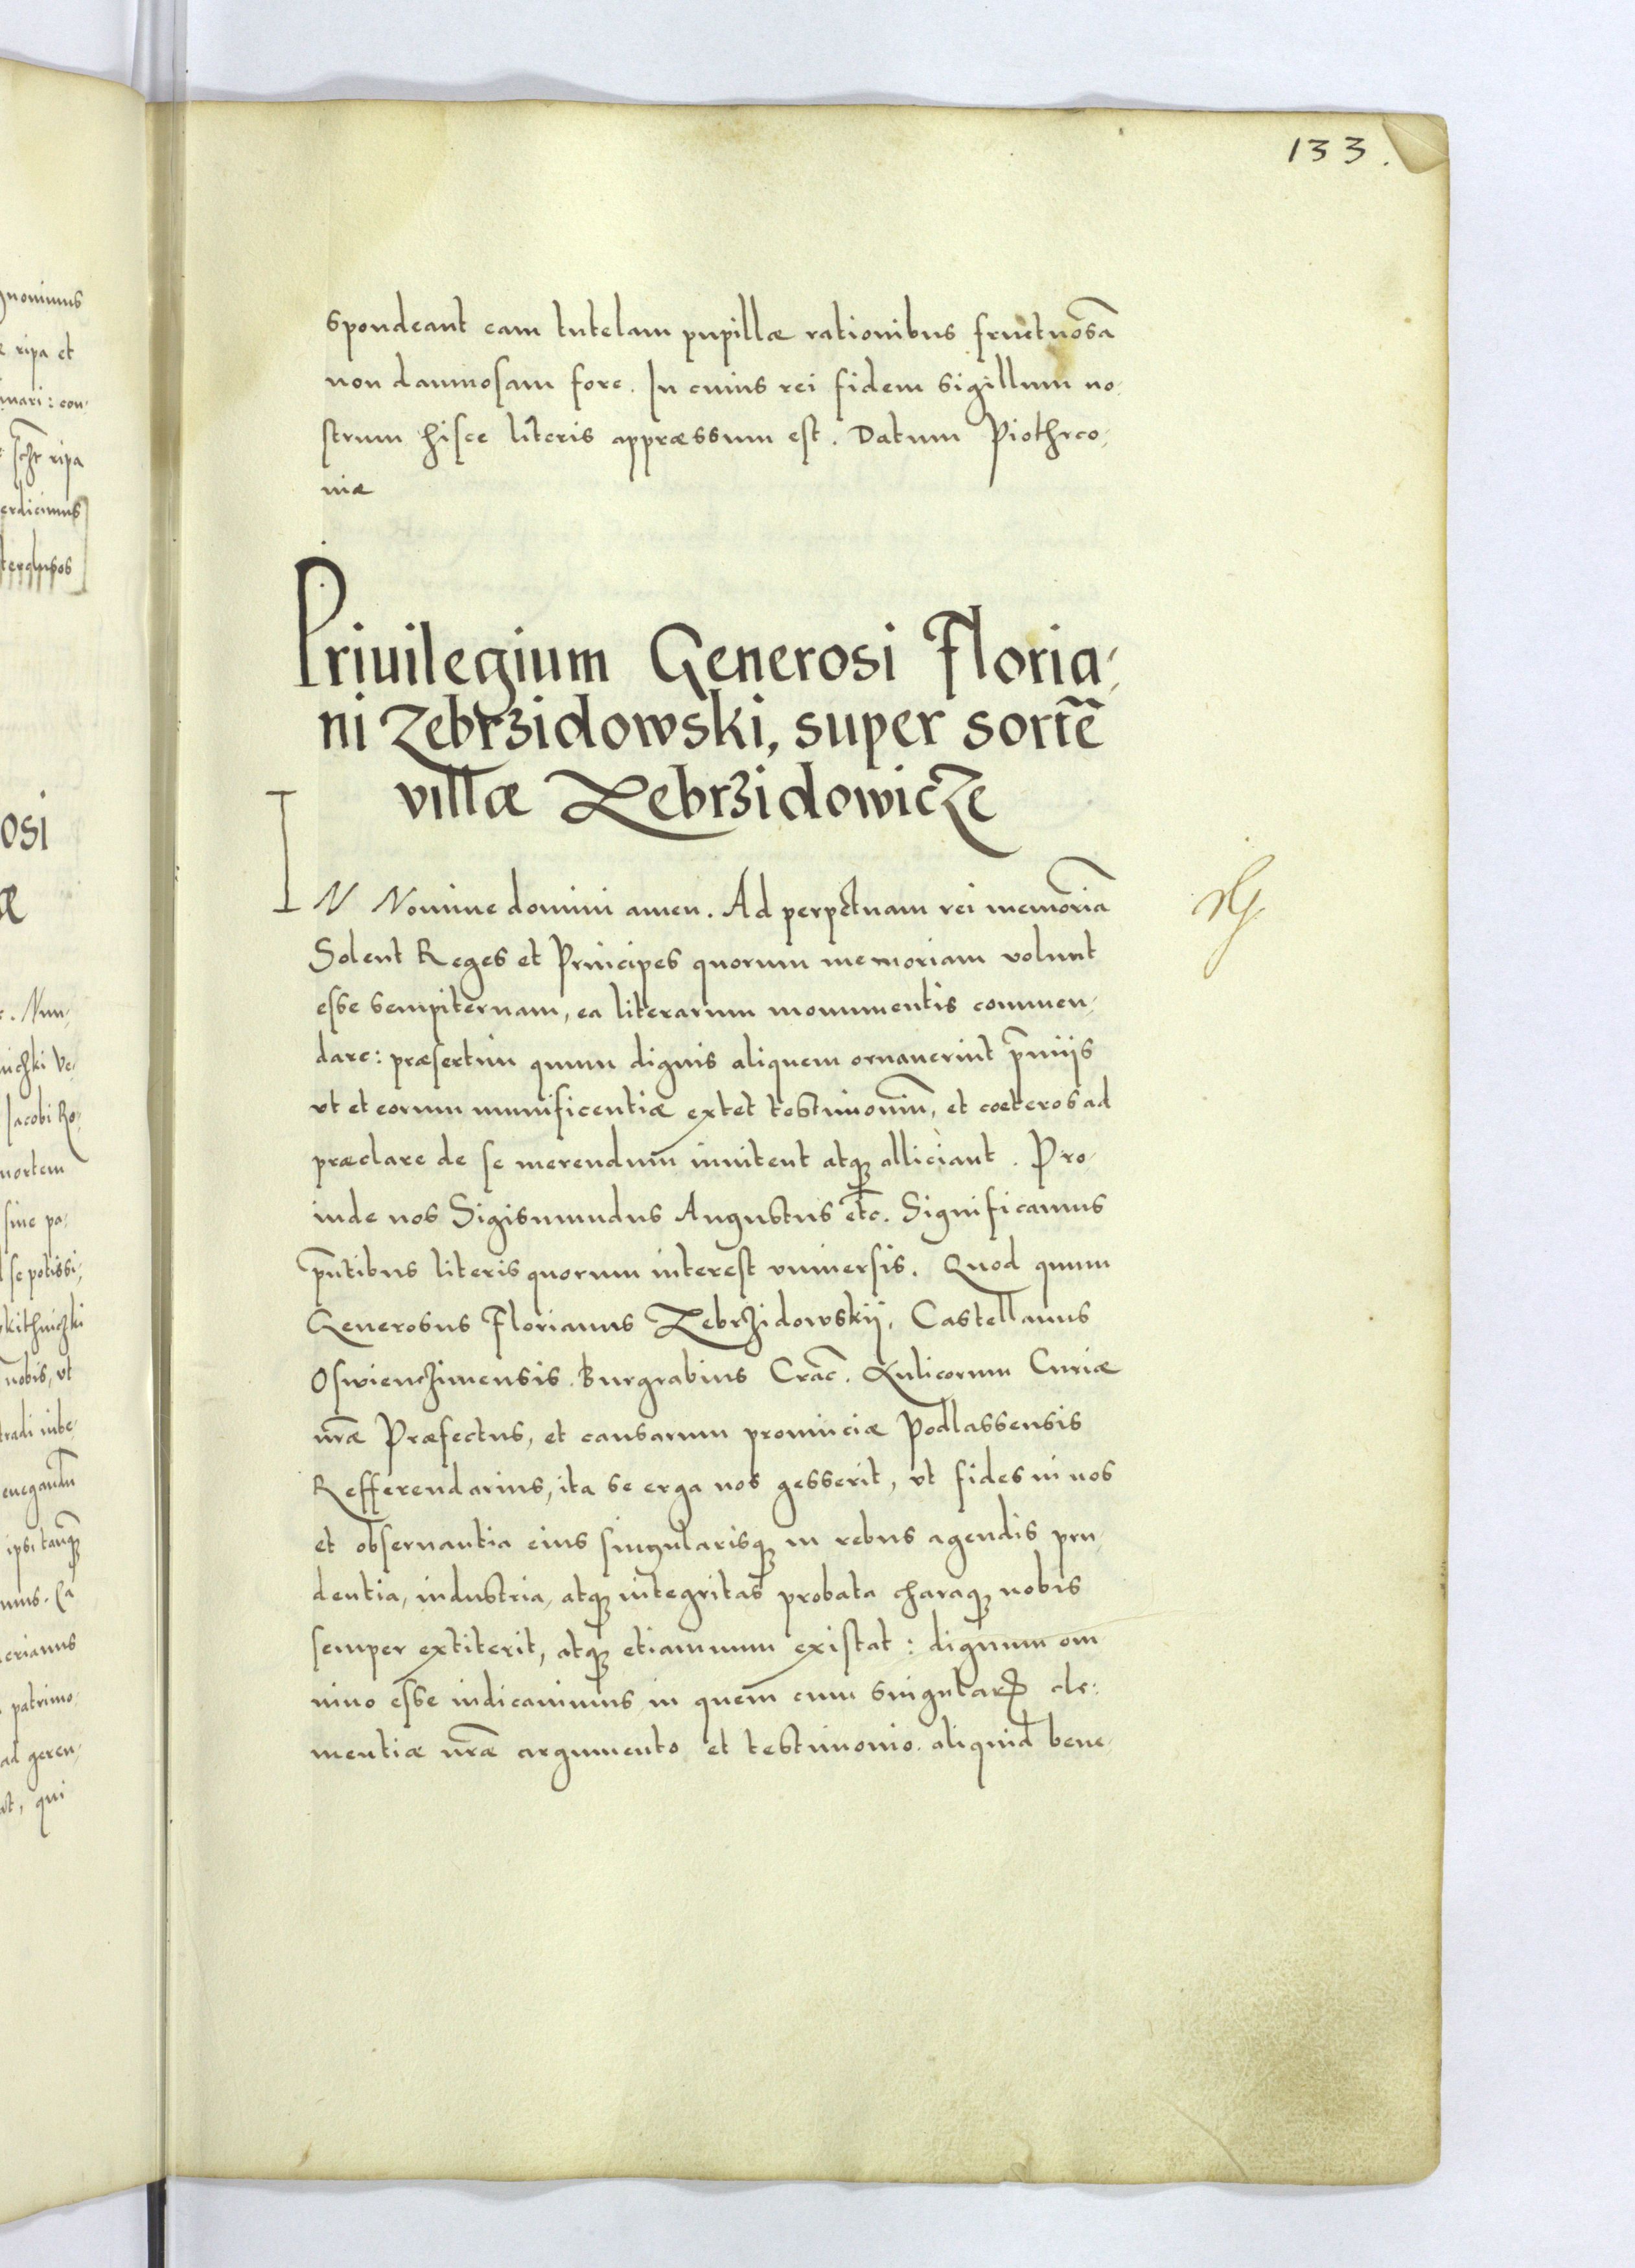 133.
spondeant eam tutelam pupillæ rationibus fructuosā
non damnosam fore. In cuius rei fidem sigillum no-
strum hisce literis appræssum est. Datum Piothrco-
niæ
Priuilegium Generosi Floria-
ni Zebrzidowski, super sortē
villæ Zebrzidowicze
IN Nomine domini amen. Ad perpetuam rei memoriā
Solent Reges et Principes quorum memoriam volunt
esse sempiternam, ea literarum monumentis commen-
dare: præsertim quum dignis aliquem ornauerint p̄miis
vt et eorum munificentiæ extet testimoniū, et coeteros ad
præclare de se merendum inuitent atq̨ alliciant. Pro-
inde nos Sigismundus Augustus etc. Significamus
p̄ntibus literis quorum interest vniuersis. Quod quum
Generosus Florianus Zebrzidowskij, Castellanus
Oswienczimensis. Burgrabius Crac̄. Aulicorum Curiæ
nr̄æ Præfectus, et causarum prouinciæ Podlassensis
Refferendarius, ita se erga nos gesserit, vt fides in nos
et obseruantia eius singularisq̨ in rebus agendis pru-
dentia, industria, atq̨ integritas probata charaq̨ nobis
semper extiterit, atq̨ etiamnum existat: dignum om
nino esse iudicauimus, in quem cum singulari cle-
mentiæ nr̄æ argumento et testimonio aliquid bene-